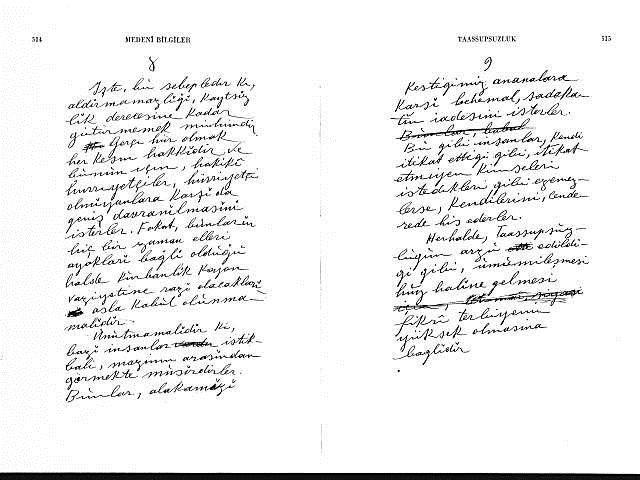 514
MEDENÎ BİLGİLER
8
İşte, bu sebepledir ki,
aldırmamazlığı, kayıtsız
lık derecesine kadar
götürmemek mühimdir
Gerçi hür olmak
herkesin hakkıdır ve
bunun için, hakiki
hürriyetçiler, hürriyetçi
olmıyanlara karşı da
geniş davranılmasını
isterler. Fakat, bunların
hiç bir zaman elleri
ayakları bağlı olduğu
halde kurbanlık koyun
vaziyetine razı olacakları
asla kabul olunma-
malıdır.
Unutmamalıdır ki,
bazı insanlar istik-
bali, mazinin arasından
görmekte müsirdirler.
Bunlar, alâkamızı
TAASSUPSUZLUK
515
9
kestiğimiz ananalara
karşı behemal, sadaka-
tın iadesini isterler.
Bunlar, kabul
Bu gibi insanlar, kendi
itikat ettiği gibi, itikat
etmiyen kimseleri
istedikleri gibi ezemez-
lerse, kendilerini, cende-
rede his ederler.
Herhalde, Taassupsuz-
luğun arzu edildi-
ği gibi, umumileşmesi
huy haline gelmesi
fikrî terbiyenin
yüksek olmasına
bağlıdır